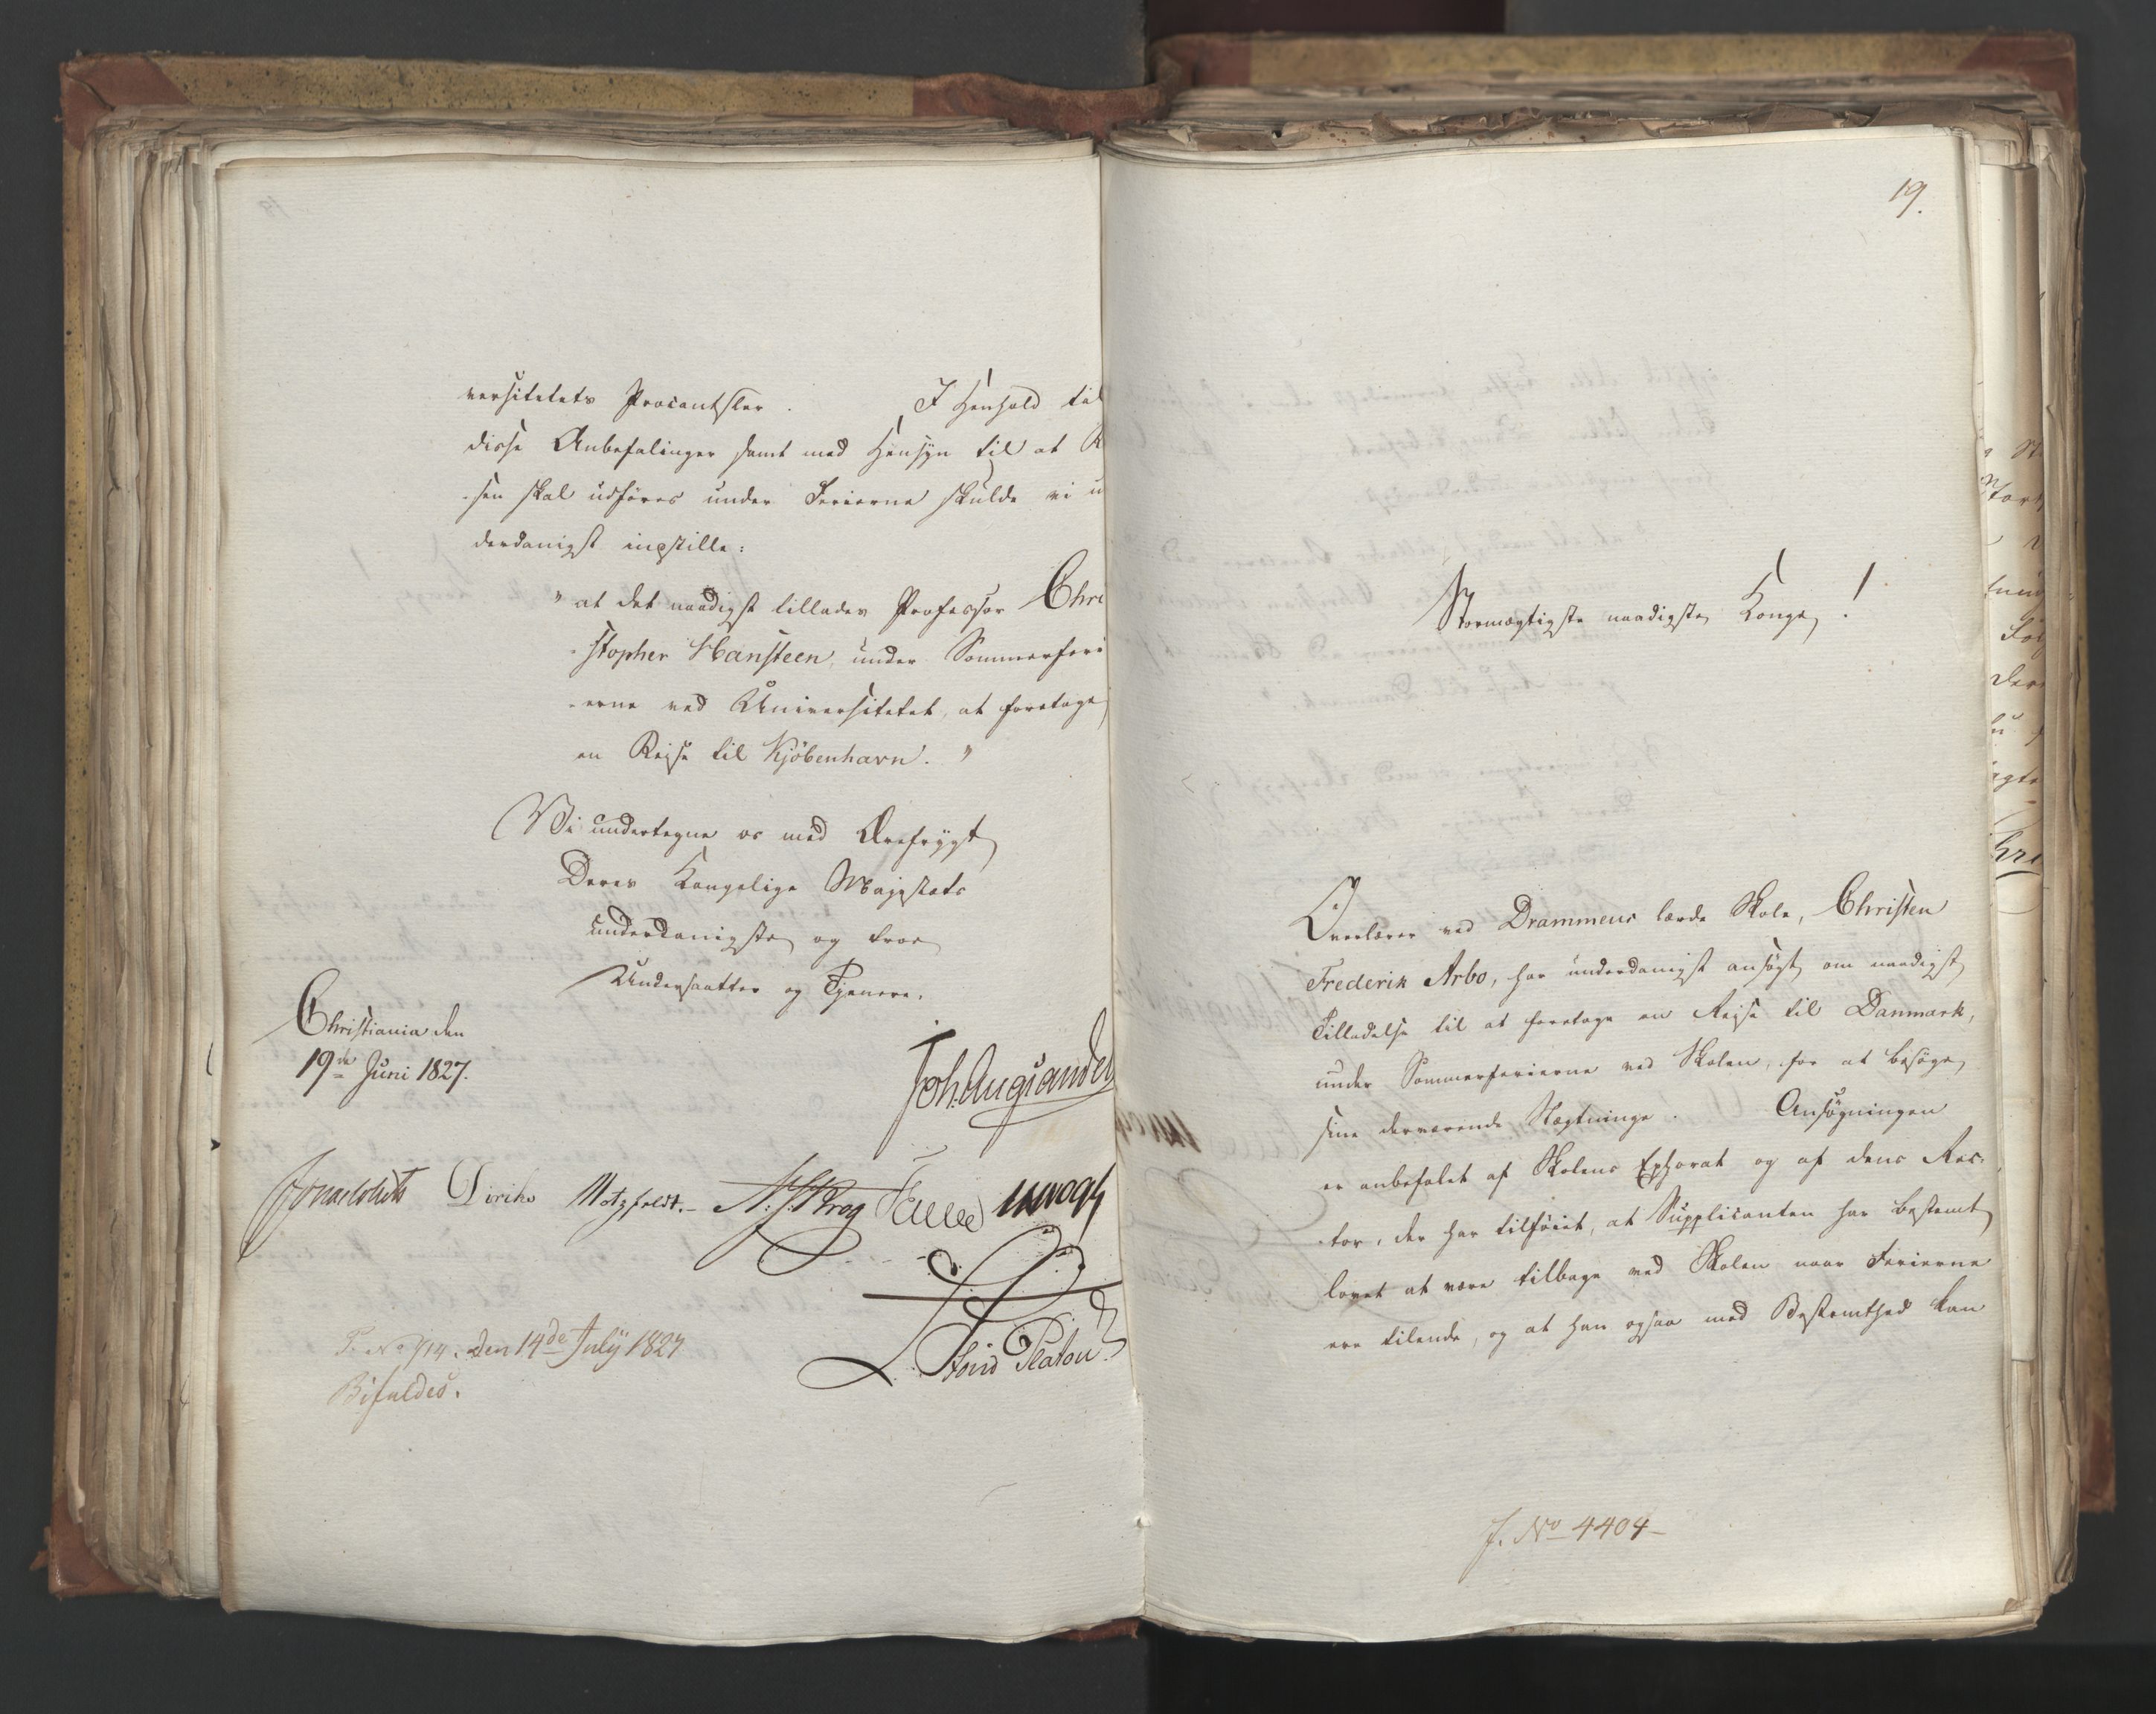 versitetets Procantsler. I Henhold til
disse Anbefalinger samt med Hensyn til at R
-sen skal udføres under Ferierne skulde vi u
derdanigst indstille:
" at det naadigst tillades Professor Chri
-stopher Hansteen, under Sommerferi
-erne ved Universitetet, at foretage
en Reise til Kjöbenhavn. "
Vi undertegne os med Ærefrygt
Deres Kongelige Majestæts
underdanigste og troe
Undersaatter og Tjenere.
Christiania den
19de Juni 1827.
Joh. Aug Sandel
Jonas Collett Diriks Motzfeldt. N. J. Krog Fasting JH Vogt
Stoud Platou
P. No 914. den 14de July 1827
Bifaldes.
19.
Stormægtigste naadigste Konge!
Overlærer ved Drammens lærde Skole, Christen
Frederik Arbo, har underdanigst ansøgt om naadigst
Tilladelse til at foretage en Reise til Danmark,
under Sommerferierne ved Skolen, for at besøge
sine derværende Slægtninge. Ansøgningen
er anbefalet af Skolens Ephorat og af dens Rec-
-tor, der har tilføiet, at Supplicanten har bestemt
lovet at være tilbage ved Skolen naar Ferierne
ere tilende, og at han ogsaa med Bestemthed kan
J. No 4404